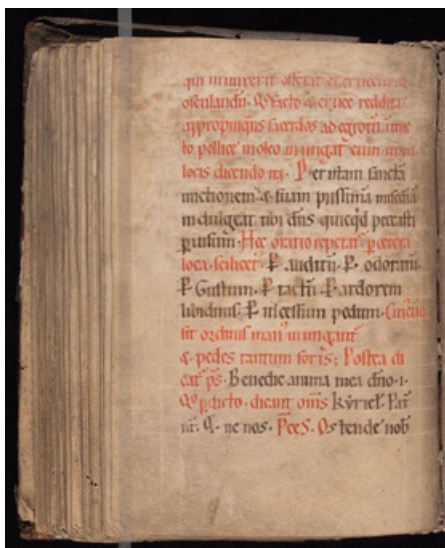 qui inunxerit offerat ei crucem ad
osculandū. Qd facto & cruce reddita
appropinquās sacerdos ad egrotū unc
to pollice in oleo inungat eum in his
locis dicendo ita. Per istam sanctā
unctionem & suam piissimā misc̄diā
indulgeat tibi dn̄s quicqd peccasti
p uisum. Hec oratio repetat p cetera
loca. scilicet. P auditū. P odoratū.
P Gustum. P tactū. P ardorem
libidinis. P incessum pedum.
sit ordinis man inungant
& pedes tantum foris; Postea di
cat ps. Benedic anima mea dn̄o. i.
Qo pdicto. dicant om̄s kyriel. Pat
nr. &. ne nos. Preces. Ostende nob